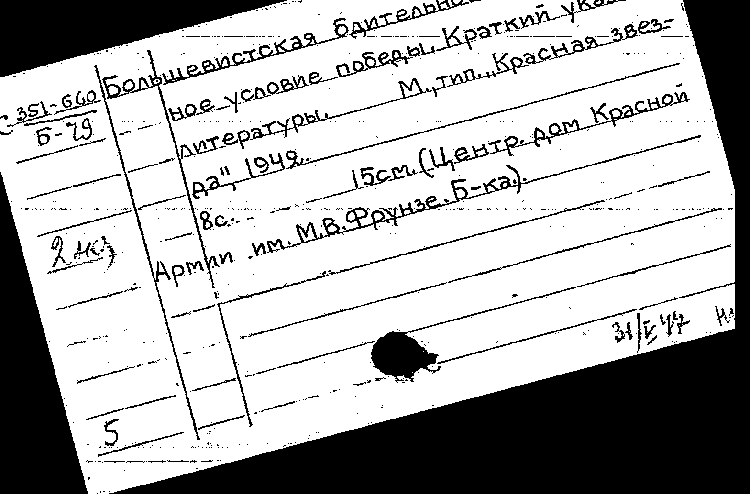 Большевистская бдительно
С 351-660
Б-79
ное условие победы. Краткий указ
литературы. М., тип. „Красная звез-
да", 1942.
8с. 15см. (Центр. дом Красной
Армии им. М.В. Фрунзе. Б-ка).
2 экз
5